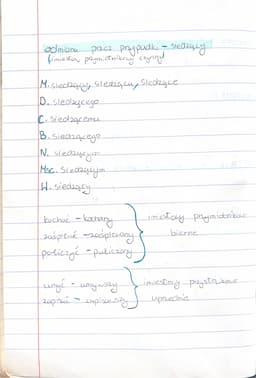 odmiana przez przypadki - siedzący
(imiesłów przymiotnikowy czynny)
M. siedzący, siedząca, siedzące
D. siedzącego
C. siedzącemu
B. siedzącego
N. siedzącym
Msc. siedzącym
W. siedzący
kochać - kochany
zaśpiewać - zaśpiewany
policzyć - policzony
imiesłowy przymiotnikowe
bierne
umyć - umywszy
zapisać - zapisawszy
imiesłowy przysłówkowe
uprzednie